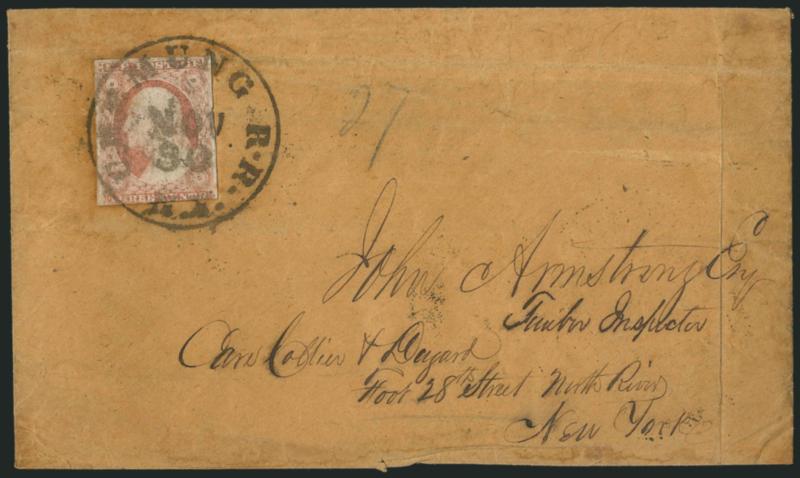 CHEMUNG R.R. N.Y.
NOV
30
27
John Armstrong Esq
Timber Inspector
Care Collier &
Foot 28th Street North River
New York